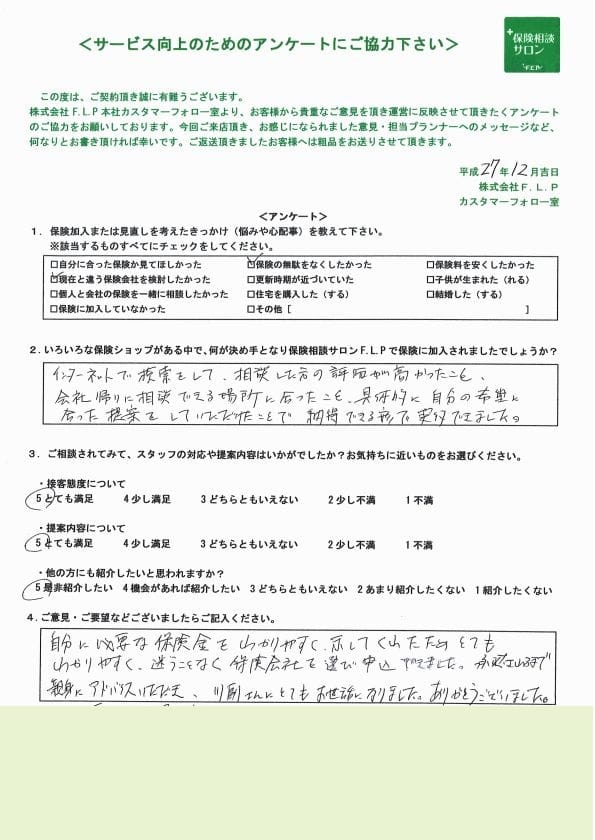 ＜サービス向上のためのアンケートにご協力下さい＞
+保険相談
サロン
F.L.P
この度は、ご契約頂き誠に有難うございます。
株式会社F.L.P本社カスタマーフォロー室より、お客様から貴重なご意見を頂き運営に反映させて頂きたくアンケート
のご協力をお願いしております。今回ご来店頂き、お感じになられました意見・担当プランナーへのメッセージなど、
何なりとお書き頂ければ幸いです。ご返送頂きましたお客様へは粗品をお送りさせて頂きます。
平成27年12月吉日
株式会社F.L.P
カスタマーフォロー室
＜アンケート＞
1．保険加入または見直しを考えたきっかけ（悩みや心配事）を教えて下さい。
※該当するものすべてにチェックをしてください。
□自分に合った保険か見てほしかった ☑保険の無駄をなくしたかった □保険料を安くしたかった
☑現在と違う保険会社を検討したかった □更新時期が近づいていた □子供が生まれた（れる）
□個人と会社の保険を一緒に相談したかった □住宅を購入した（する） □結婚した（する）
□保険に加入していなかった □その他［ ］
2.いろいろな保険ショップがある中で、何が決め手となり保険相談サロンF.L.Pで保険に加入されましたでしょうか？
インターネットで検索をして、相談した方の評価が高かったこと、
会社帰りに相談できる場所に合ったこと、具体的に自分の希望に
合った提案をしていただけたことで納得できる形で契約できました。
3．ご相談されてみて、スタッフの対応や提案内容はいかがでしたか？お気持ちに近いものをお選びください。
・接客態度について
5とても満足 4少し満足 3どちらともいえない 2少し不満 1不満
・提案内容について
5とても満足 4少し満足 3どちらともいえない 2少し不満 1不満
・他の方にも紹介したいと思われますか？
5是非紹介したい 4機会があれば紹介したい 3どちらともいえない 2あまり紹介したくない 1紹介したくない
4.ご意見・ご要望などございましたらご記入ください。
自分に必要な保険金をわかりやすく示してくれたためとても
わかりやすく、迷うことなく保険会社を選び申込できました。まで
親身にアドバイスいただき、川副さんにとてもお世話になりました。ありがとうございました。